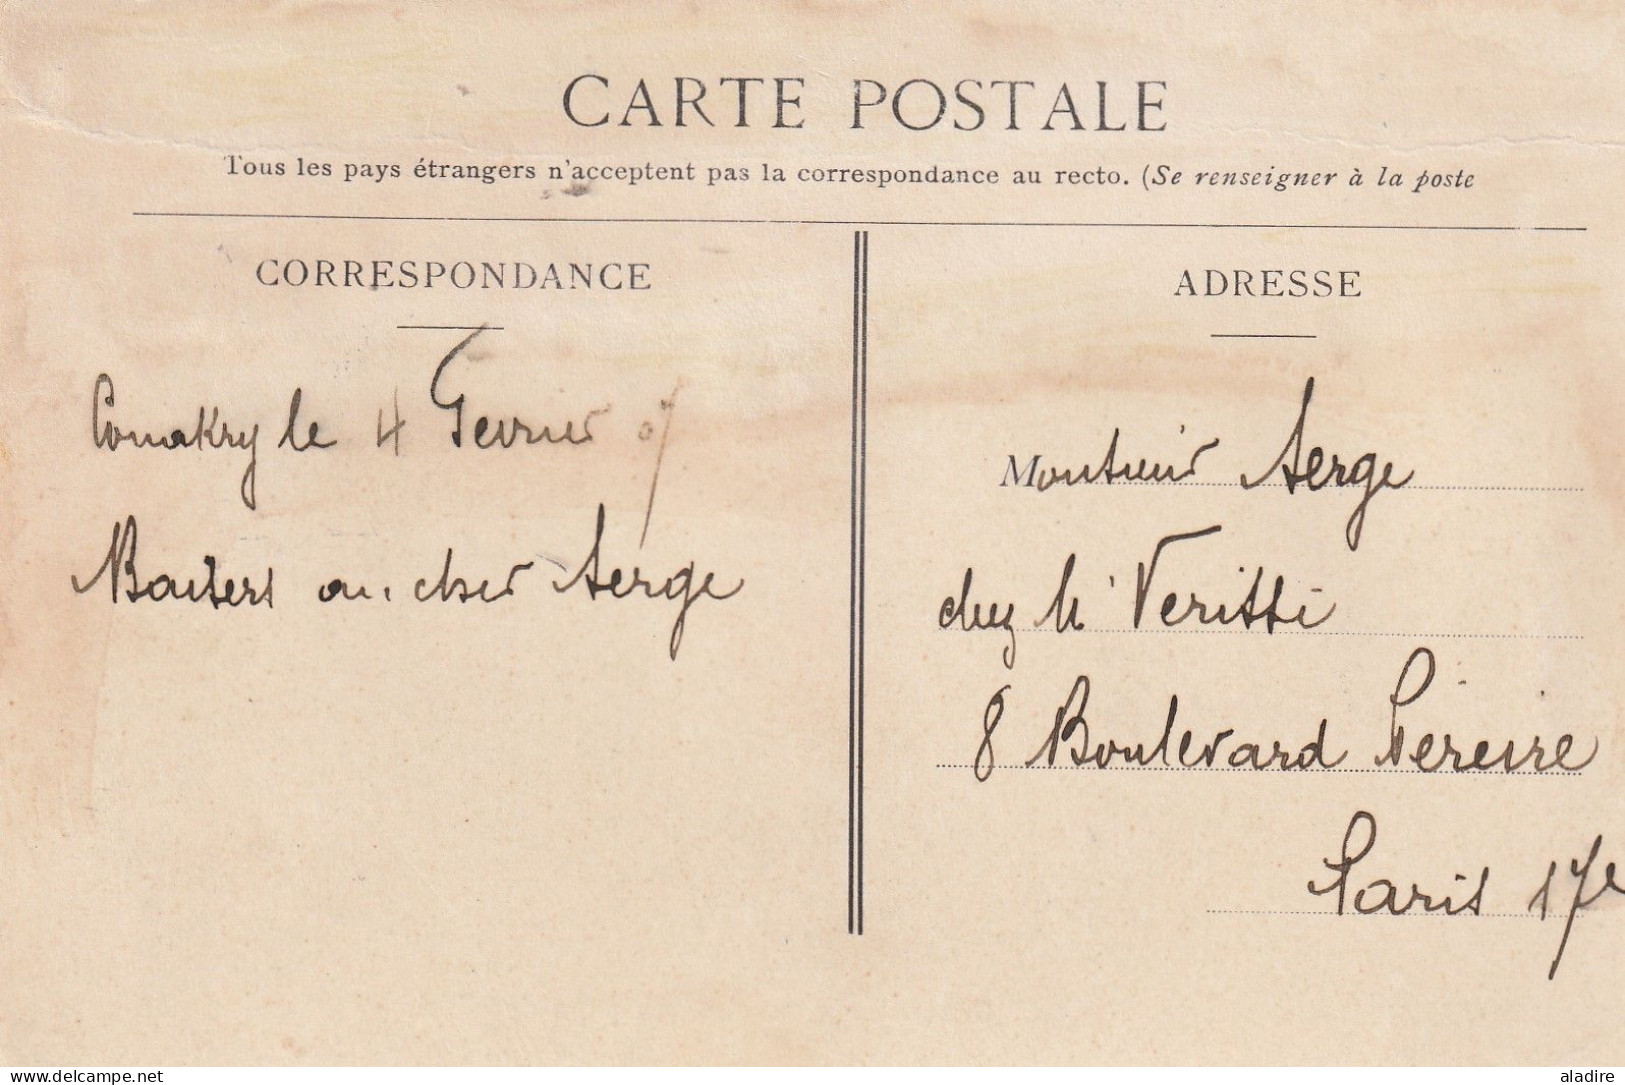 CARTE POSTALE
Tous les pays étrangers n'acceptent pas la correspondance au recto. (Se renseigner à la poste
CORRESPONDANCE
Conakry le 4 Fevrier 07
Baisers au cher Serge
ADRESSE
Monsieur Serge
chez Mr Veritti
8 Boulevard Péreire
Paris 17e
aladire